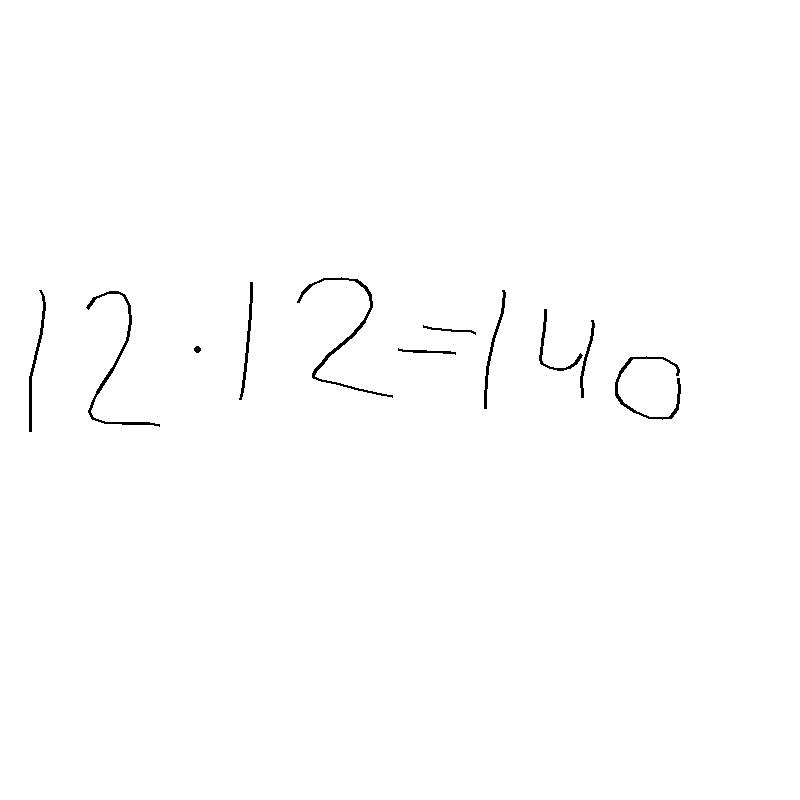 12·12=140